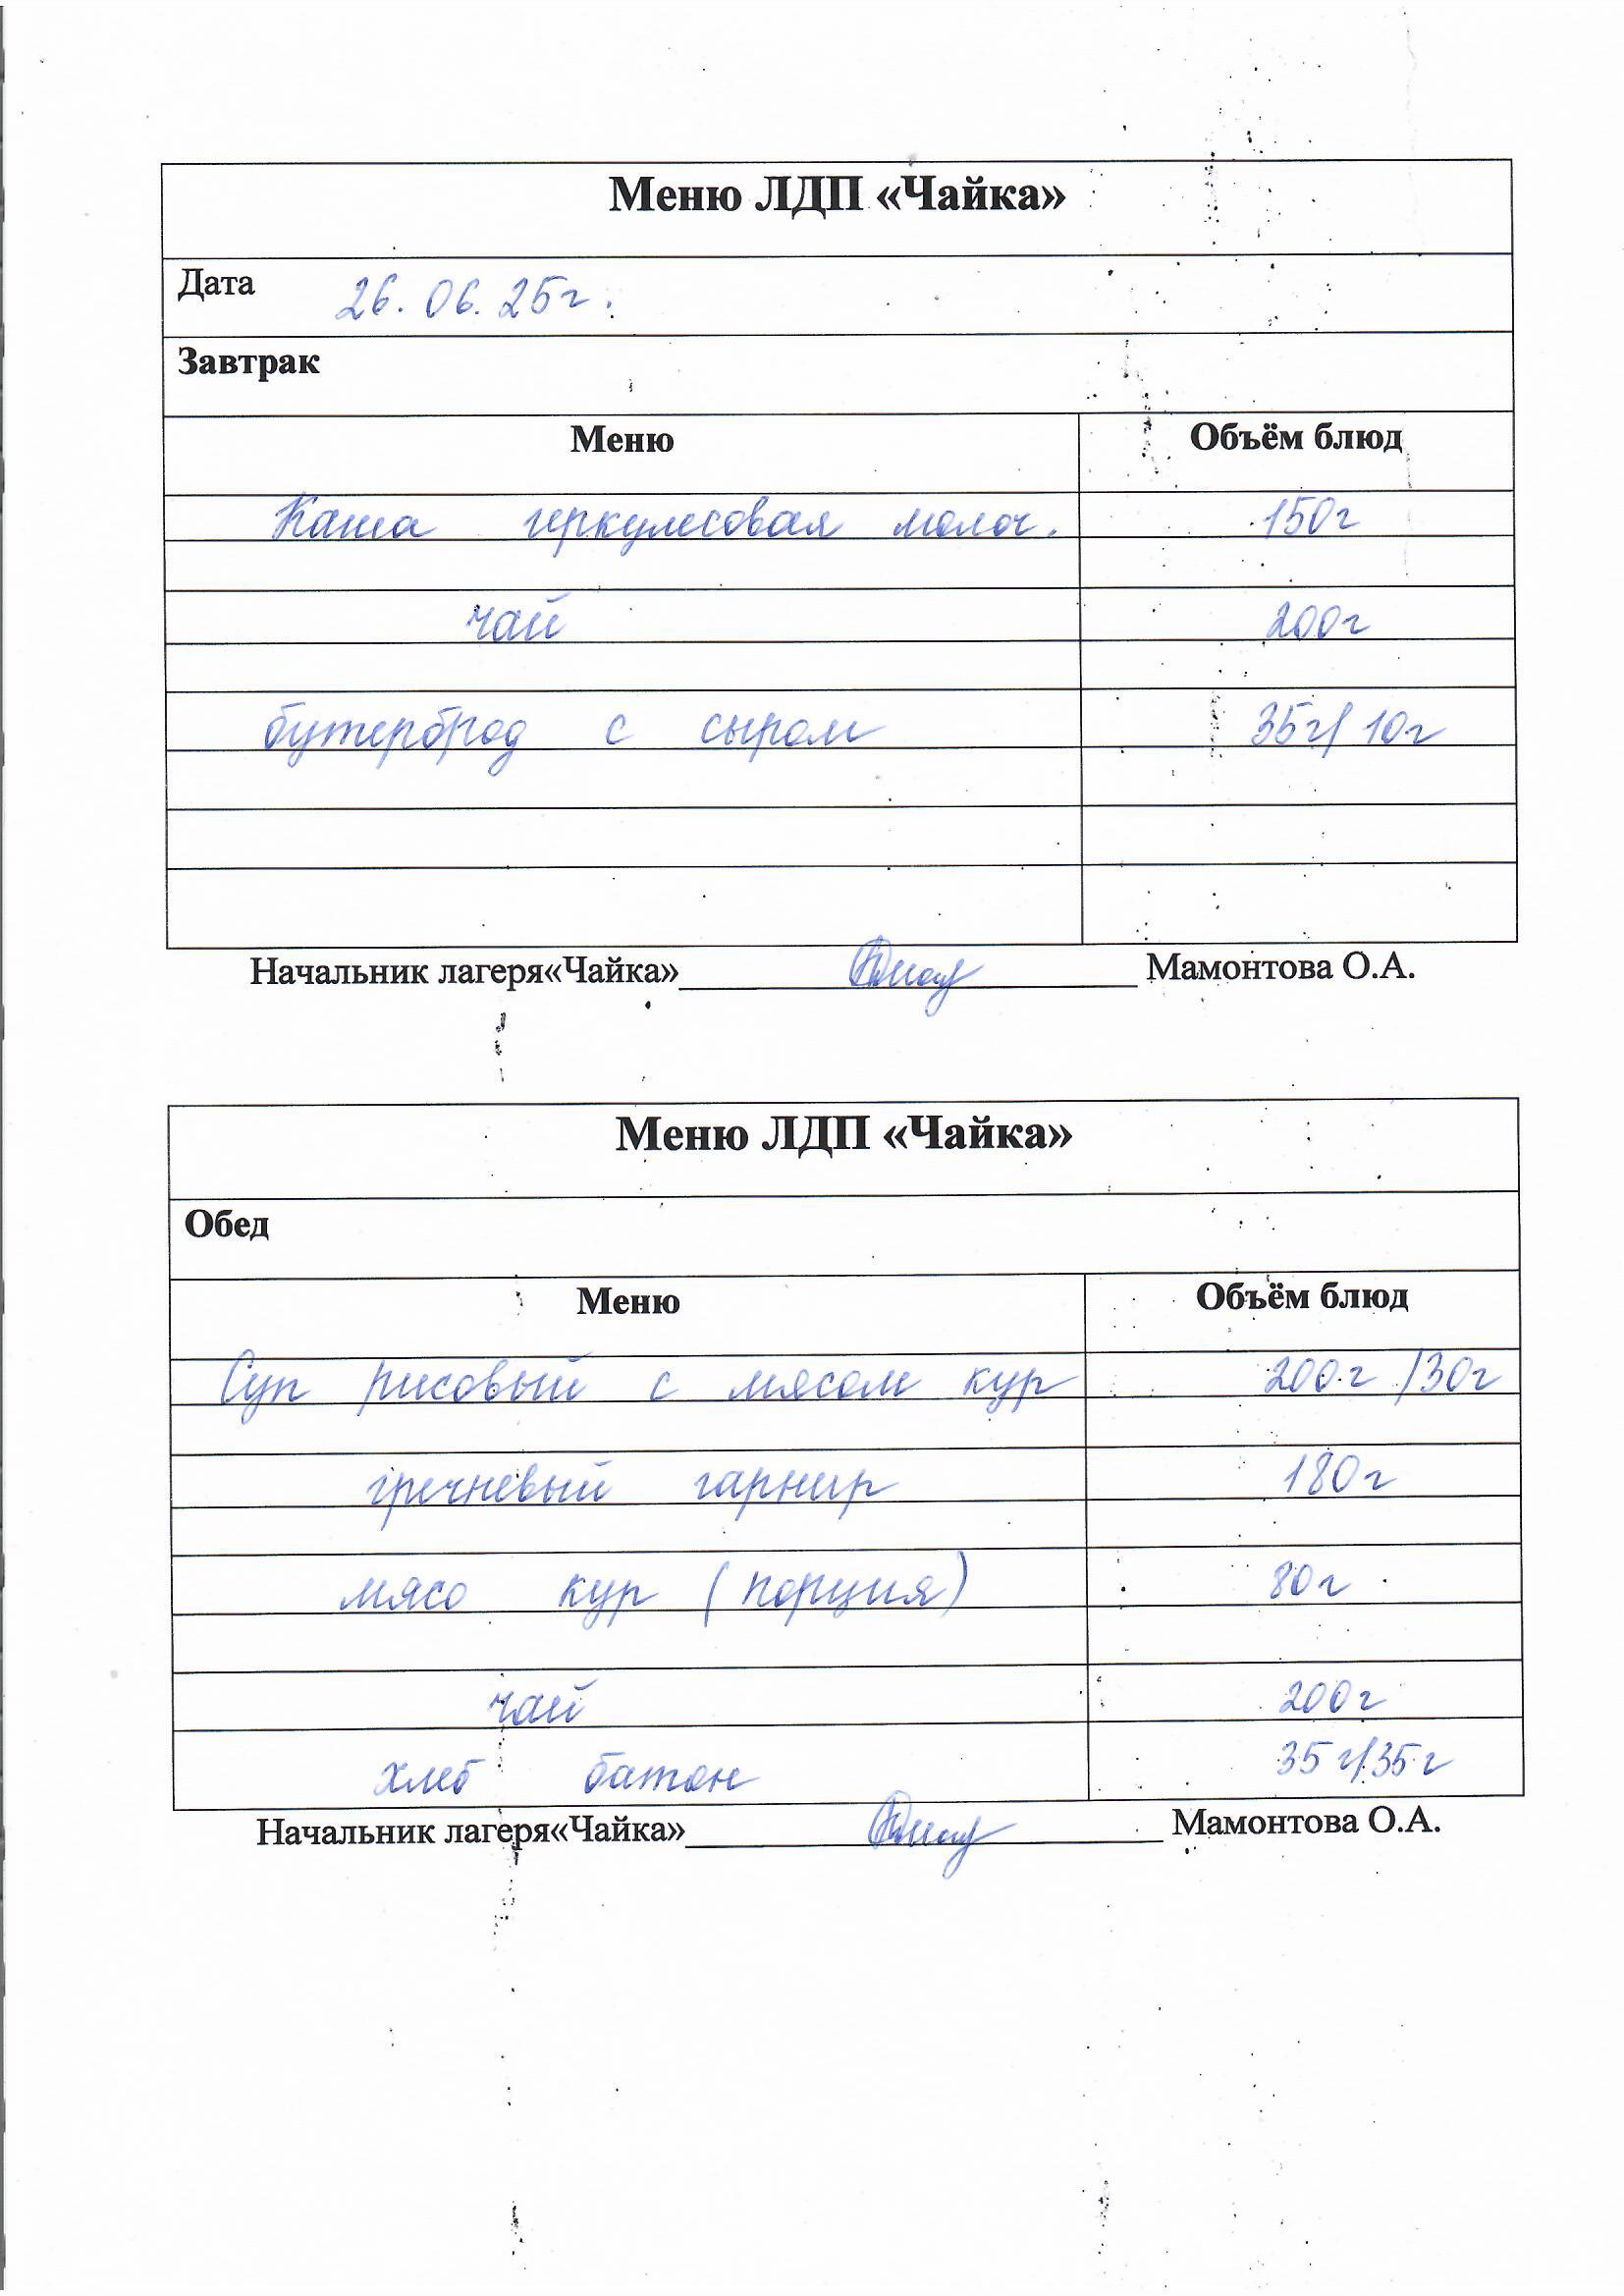 Меню ЛДП «Чайка»
Дата 26.06.25г.
Завтрак
Меню Объём блюд
Каша геркулесовая молоч. 150г
чай 200г
бутерброд с сыром 35г/10г
Начальник лагеря«Чайка» Мамонтова О.А.
Меню ЛДП «Чайка»
Обед
Меню Объём блюд
Суп рисовый с мясом кур 200г /30г
гречневый гарнир 180г
мясо кур (порция) 80г
чай 200г
хлеб батон 35г/35г
Начальник лагеря«Чайка» Мамонтова О.А.